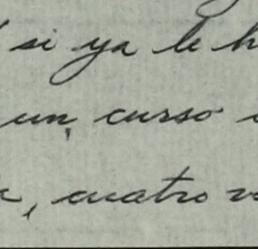 si ya le h
un curso
, cuatro v